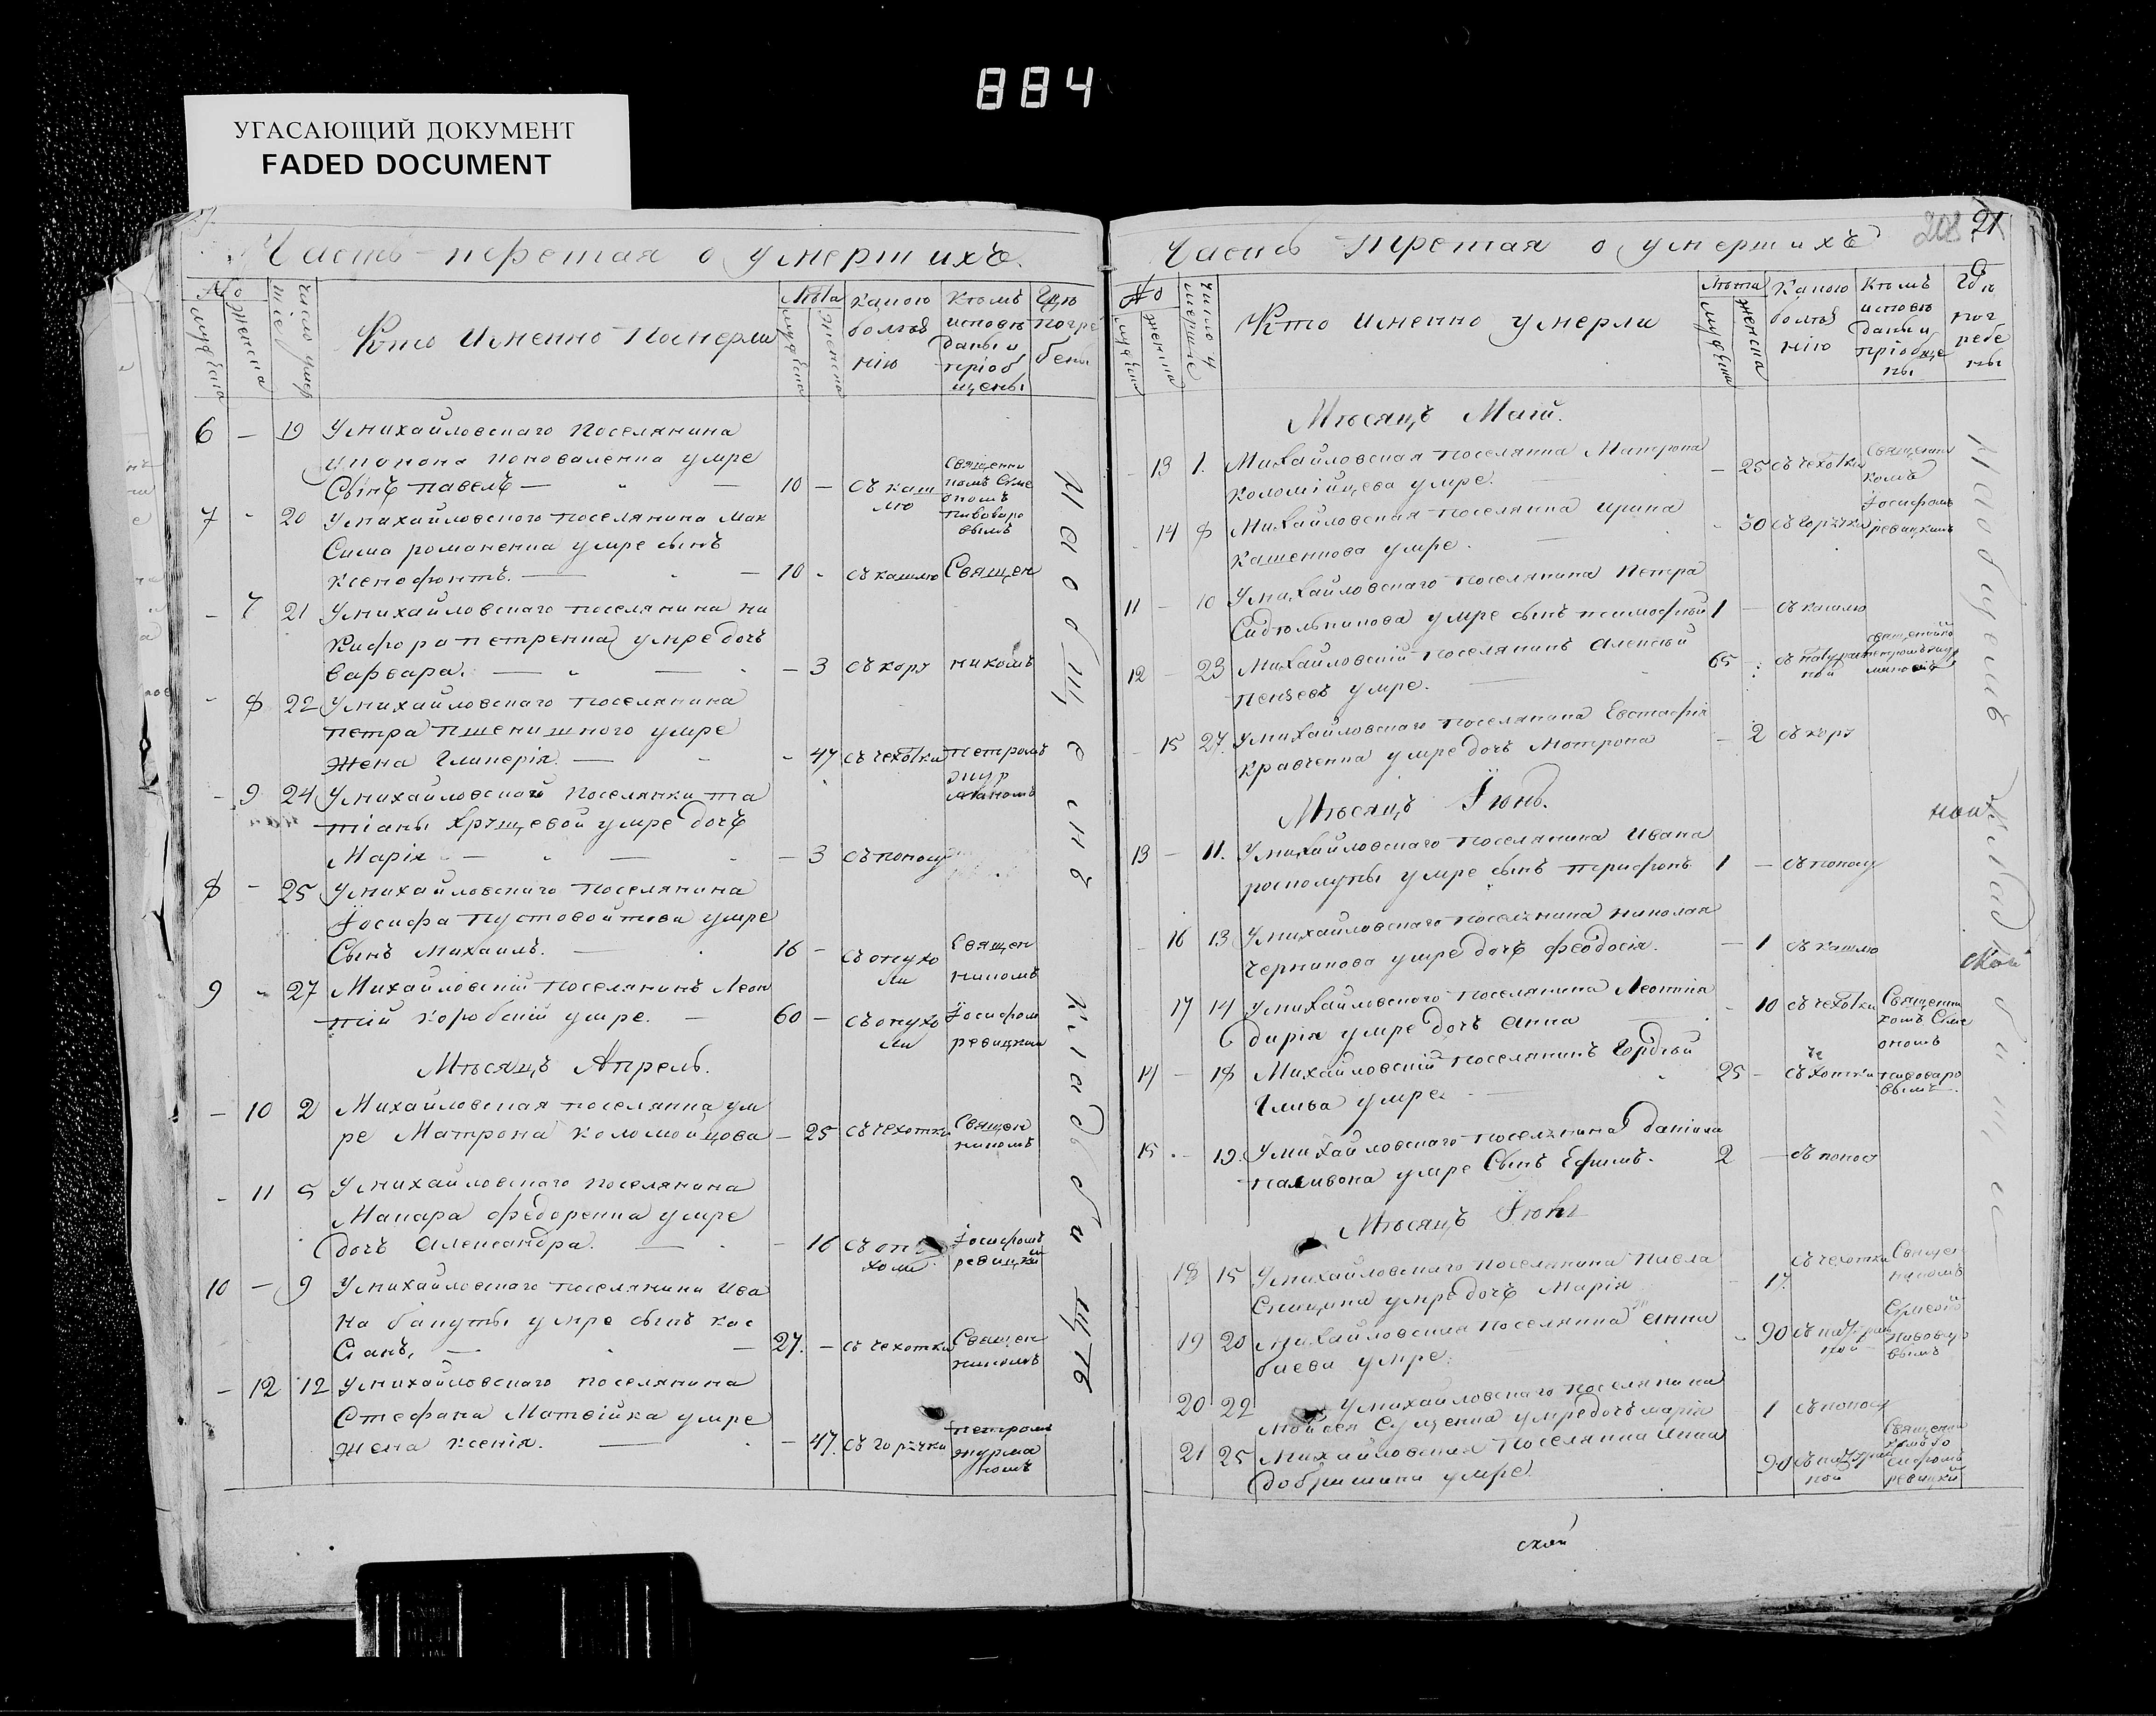 884
УГАСАЮЩИЙ ДОКУМЕНТ
FADED DOCUMENT
Часть третая о умершихъ.
№
мужеска
женска
число умер
Кто Именно Померли
Лѣта
мужеска
женска
Какою болѣз нію
Кѣмъ исповѣ даны и пріоб щены
Где погре бены
6 — 19 Умихайловскаго Поселянина
коноваленка умре
Сынъ павелъ — 10 — съ каш лю Священни комъ Симе ономъ пивоваро вымъ
7 - 20 Умихайловского поселянина Мак
сима романенка умре сынъ
ксенофонтъ. — 10 - съ кашлю Священ
- 7 21 Умихайловскаго поселянина ни
кифора петренка умре дочь
варвара. — - 3 съ кору никомъ
- 8 22 Умихайловскаго поселянина
петра пшенишного умре
жена Гликерія. — - 47 съ чехотки петромъ
- 9 24 Умихайловской Поселянки та
тіаны Хрущевой умре дочь
Марія - — — 3 съ поносу
8 - 25 Умихайловскаго поселянина
Іосифа пустовойтова умре
Сынъ Михаилъ. — 16 — съ опухо ли Священ никомъ
9 - 27 Михайловскій поселянинъ Леон
тій коробскій умре. — 60 — съ опухо ли Іосифом ревицким
Мѣсяцъ Апрель.
— 10 2 Михайловская поселянка ум
ре Матрона коломойцова — 25 съ чехотки Священ никомъ
- 11 5 Умихайловскаго поселянина
Макара федоренка умре
дочь александра. — - 16 съ опу холи Іосифомъ ревицкій
10 — 9 Умихайловскаго поселянина Ива
на бакуты умре сынъ кас
сіанъ, — 27. — съ чехотки Священ никомъ
- 12 12 Умихайловскаго поселянина
Стефана Матвійка умре
жена ксенія. — — 47. съ горячки петромъ журма номъ
На общемъ кладбищѣ
208 21
Часть Третая о умершихъ
№
мужеска
женска
число умершие
Кто Именно умерли
Лѣта
мужеска
женска
Какою болѣз нію
Кѣмъ исповѣ даны и пріобще ны
Где пог ребе ны
Мѣсяцъ Маій.
- 13 1. Михайловская поселянка Матрона
коломійцева умре. — 25 съ чехотки Священни комъ
- 14 8 Михайловская поселянка ирина
кашенкова умре. — - 30 съ горячки Іосифомъ ревицкимъ
11 — 10 Умихайловскаго поселянина Петра
умре сынъ тимофѣй 1 — съ кашлю
12 — 23 Михайловскій поселянинъ Алексѣй
пензевъ умре. — 65 - съ натурал ной
- 15 27. Умихайловскаго поселянина Евстафія
кравченка умре дочь Мотрона — 2 съ кору
Мѣсяцъ Іюнь.
13 — 11. Умихайловскаго поселянина Ивана
росполупы умре сынъ трифонъ 1 — съ поносу
- 16 13 Умихайловскаго поселянина николая
черникова умре дочь феодосія. — 1 съ кашлю
17 14 Умихайловскаго поселянина Леонтия
умре дочь Анна — - 10 съ чехотки Священни комъ Симе ономъ
14 — 18 Михайловскій поселянинъ Гордѣй
Глива умре — 25 — съ чехотки пивоваро вымъ
15 - - 19. Умихайловскаго поселянина данила
умре Сынъ Ефимъ. 2 — съ поносу
Мѣсяцъ Іюль
18 15 Умихайловскаго поселянина Павла
умре дочь Марія — 17. съ чехотки Священ никомъ
19 20 Михайловская поселянка анна
баева умре. - 90 съ натурал ной Симеоно пивовар вымъ
20 22 Умихайловскаго поселянина
Мойсея умре дочь марія 1 съ поносу
21 25 Михайловская поселянка Анна
умре. 90 съ натурал ной Священни комъ Іо сифомъ ревицкій
На общемъ кладбищѣ
ской